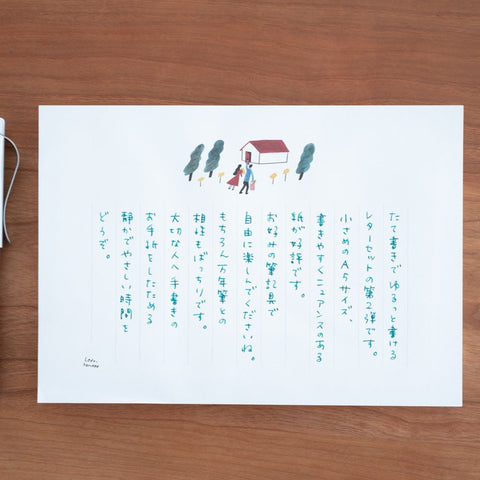 たて書きで ゆるっと書ける
レターセットの第2弾です。
小さめのA5サイズ、
書きやすくニュアンスのある
紙が好評です。
お好みの筆記具で
自由に楽しんでくださいね。
もちろん万年筆との
相性もばっちりです。
大切な人へ手書きの
お手紙をしたためる
静かでやさしい時間を
どうぞ。